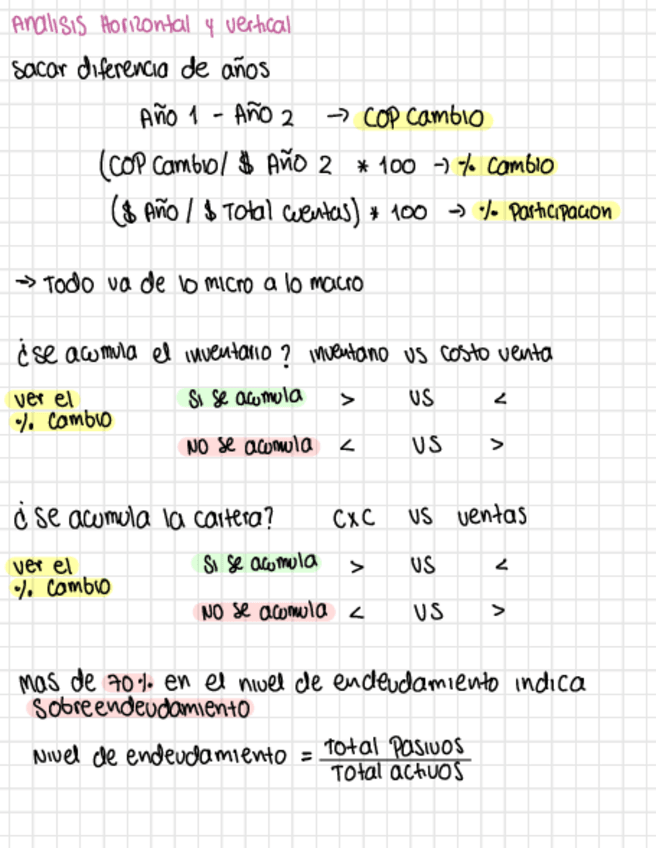 Analisis Horizontal y vertical
sacar diferencia de años
Año 1 - Año 2 → COP Cambio
(COP Cambio/ $ Año 2 * 100 → % Cambio
($ Año / $ Total cuentas) * 100 → % Participacion
→ Todo va de lo micro a lo macro
¿se acumula el inventario? inventario vs costo venta
ver el Si se acumula > vs <
% Cambio
NO se acumula < vs >
¿se acumula la cartera? CxC vs ventas
ver el Si se acumula > vs <
% Cambio
NO se acumula < vs >
mas de 70% en el nivel de endeudamiento indica
sobreendeudamiento
Nivel de endeudamiento = Total Pasivos
Total activos